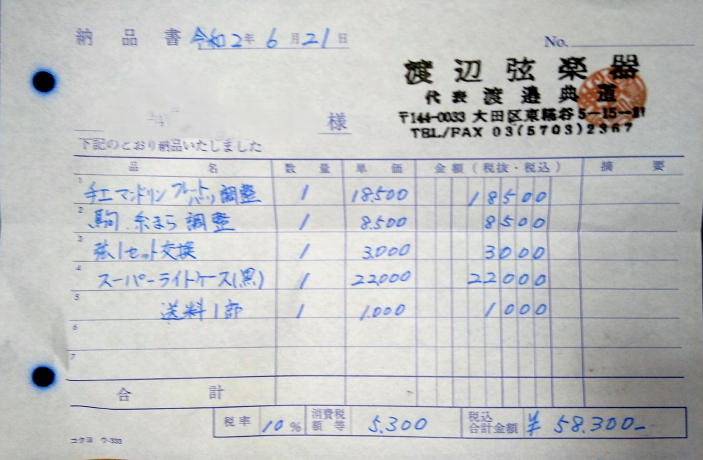 納品書 令和2年6月21日 No.
渡辺弦楽器
代表 渡邉典道
〒144-0033 大田区東糀谷5-15-21
TEL/FAX 03(5703)2367
様
下記のとおり納品いたしました
品名 数量 単価 金額(税抜・税込) 摘要
1 手工マンドリン フレット 調整 1 18.500 18500
2 駒.糸まら 調整 1 8.500 8500
3 弦1セット交換 1 3.000 3000
4 スーパーライトケース(黒) 1 22000 22000
5 送料1部 1 1.000 1000
6
7
合計
税率 10% 消費税額等 5.300 税込合計金額 ¥58.300-
コクヨ ウ-333